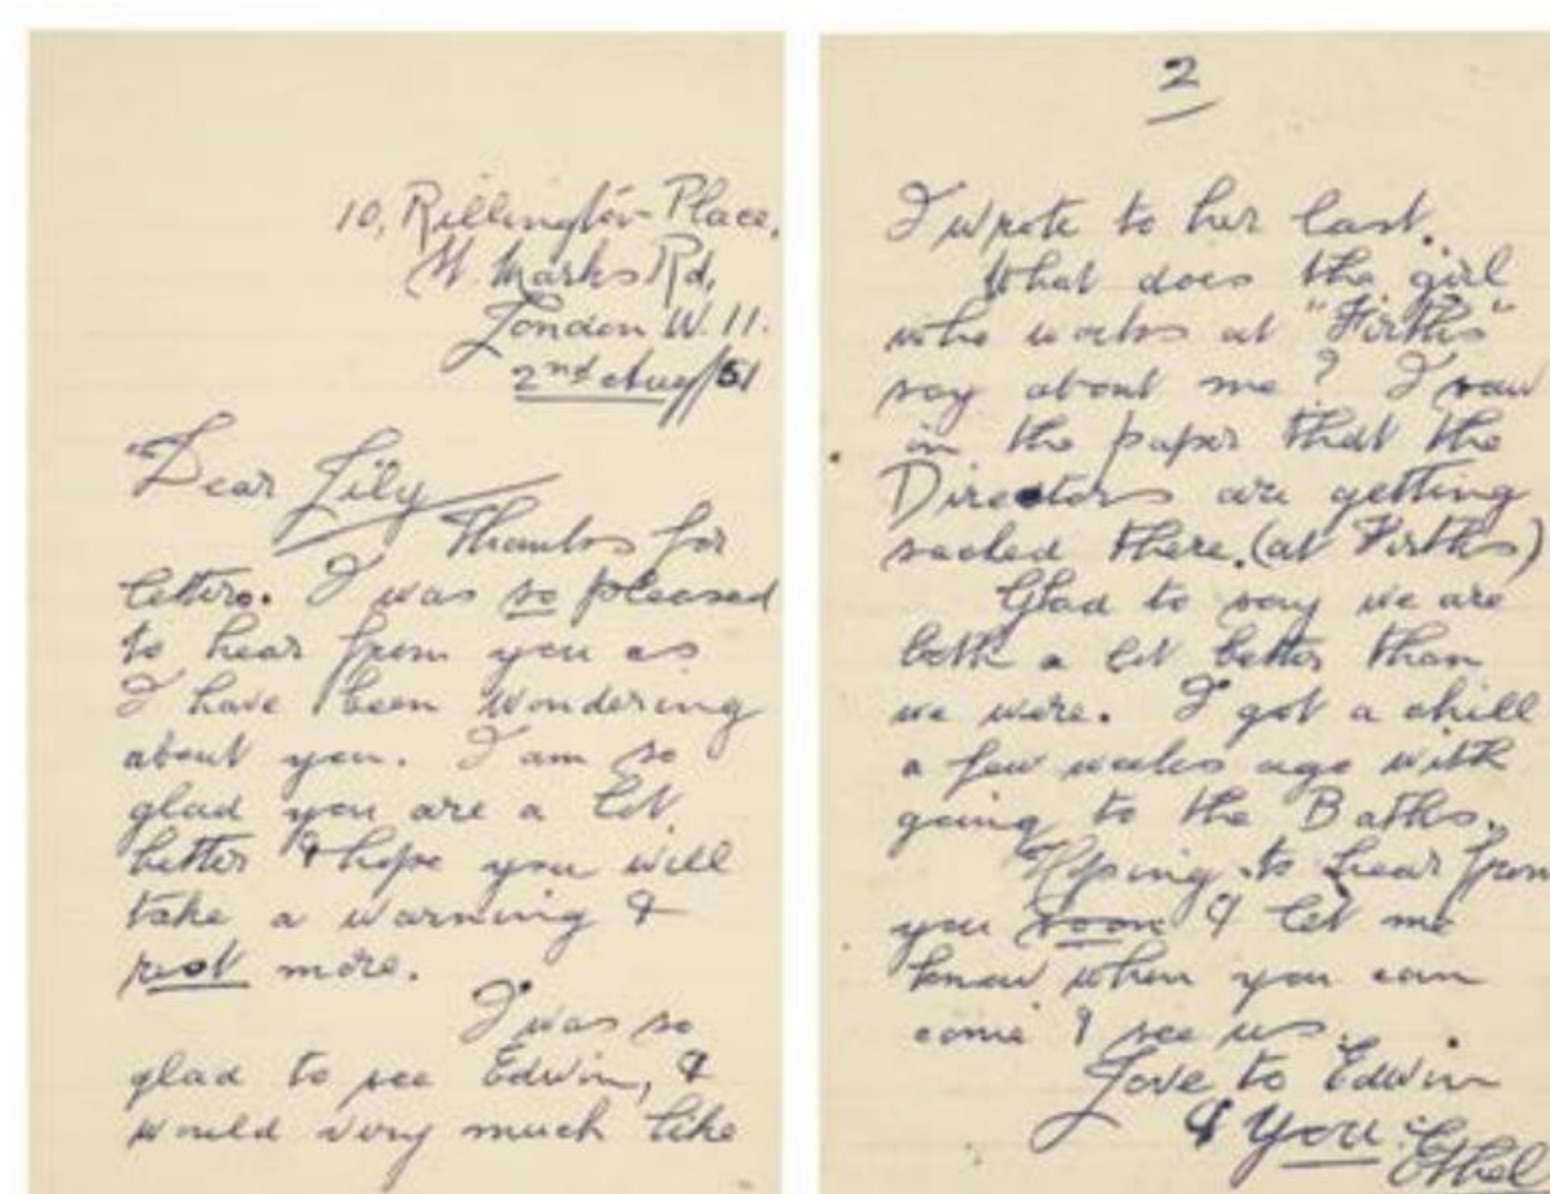 10, Rillington Place,
St. Marks Rd,
London W. 11.
2nd Aug/51
Dear Lily
Thanks for
letters. I was so pleased
to hear from you as
I have been wondering
about you. I am so
glad you are a bit
better & hope you will
take a warning &
rest more.
I was so
glad to see Edwin, &
would very much like
2
I wrote to her last.
What does the girl
who works at "Firths"
say about me? I saw
in the paper that the
Directors are getting
sacked there. (at Firths)
Glad to say we are
both a bit better than
we were. I got a chill
a few weeks ago with
going to the Baths.
Hoping to hear from
you soon & let me
know when you can
come & see us.
Love to Edwin
& you. Ethel